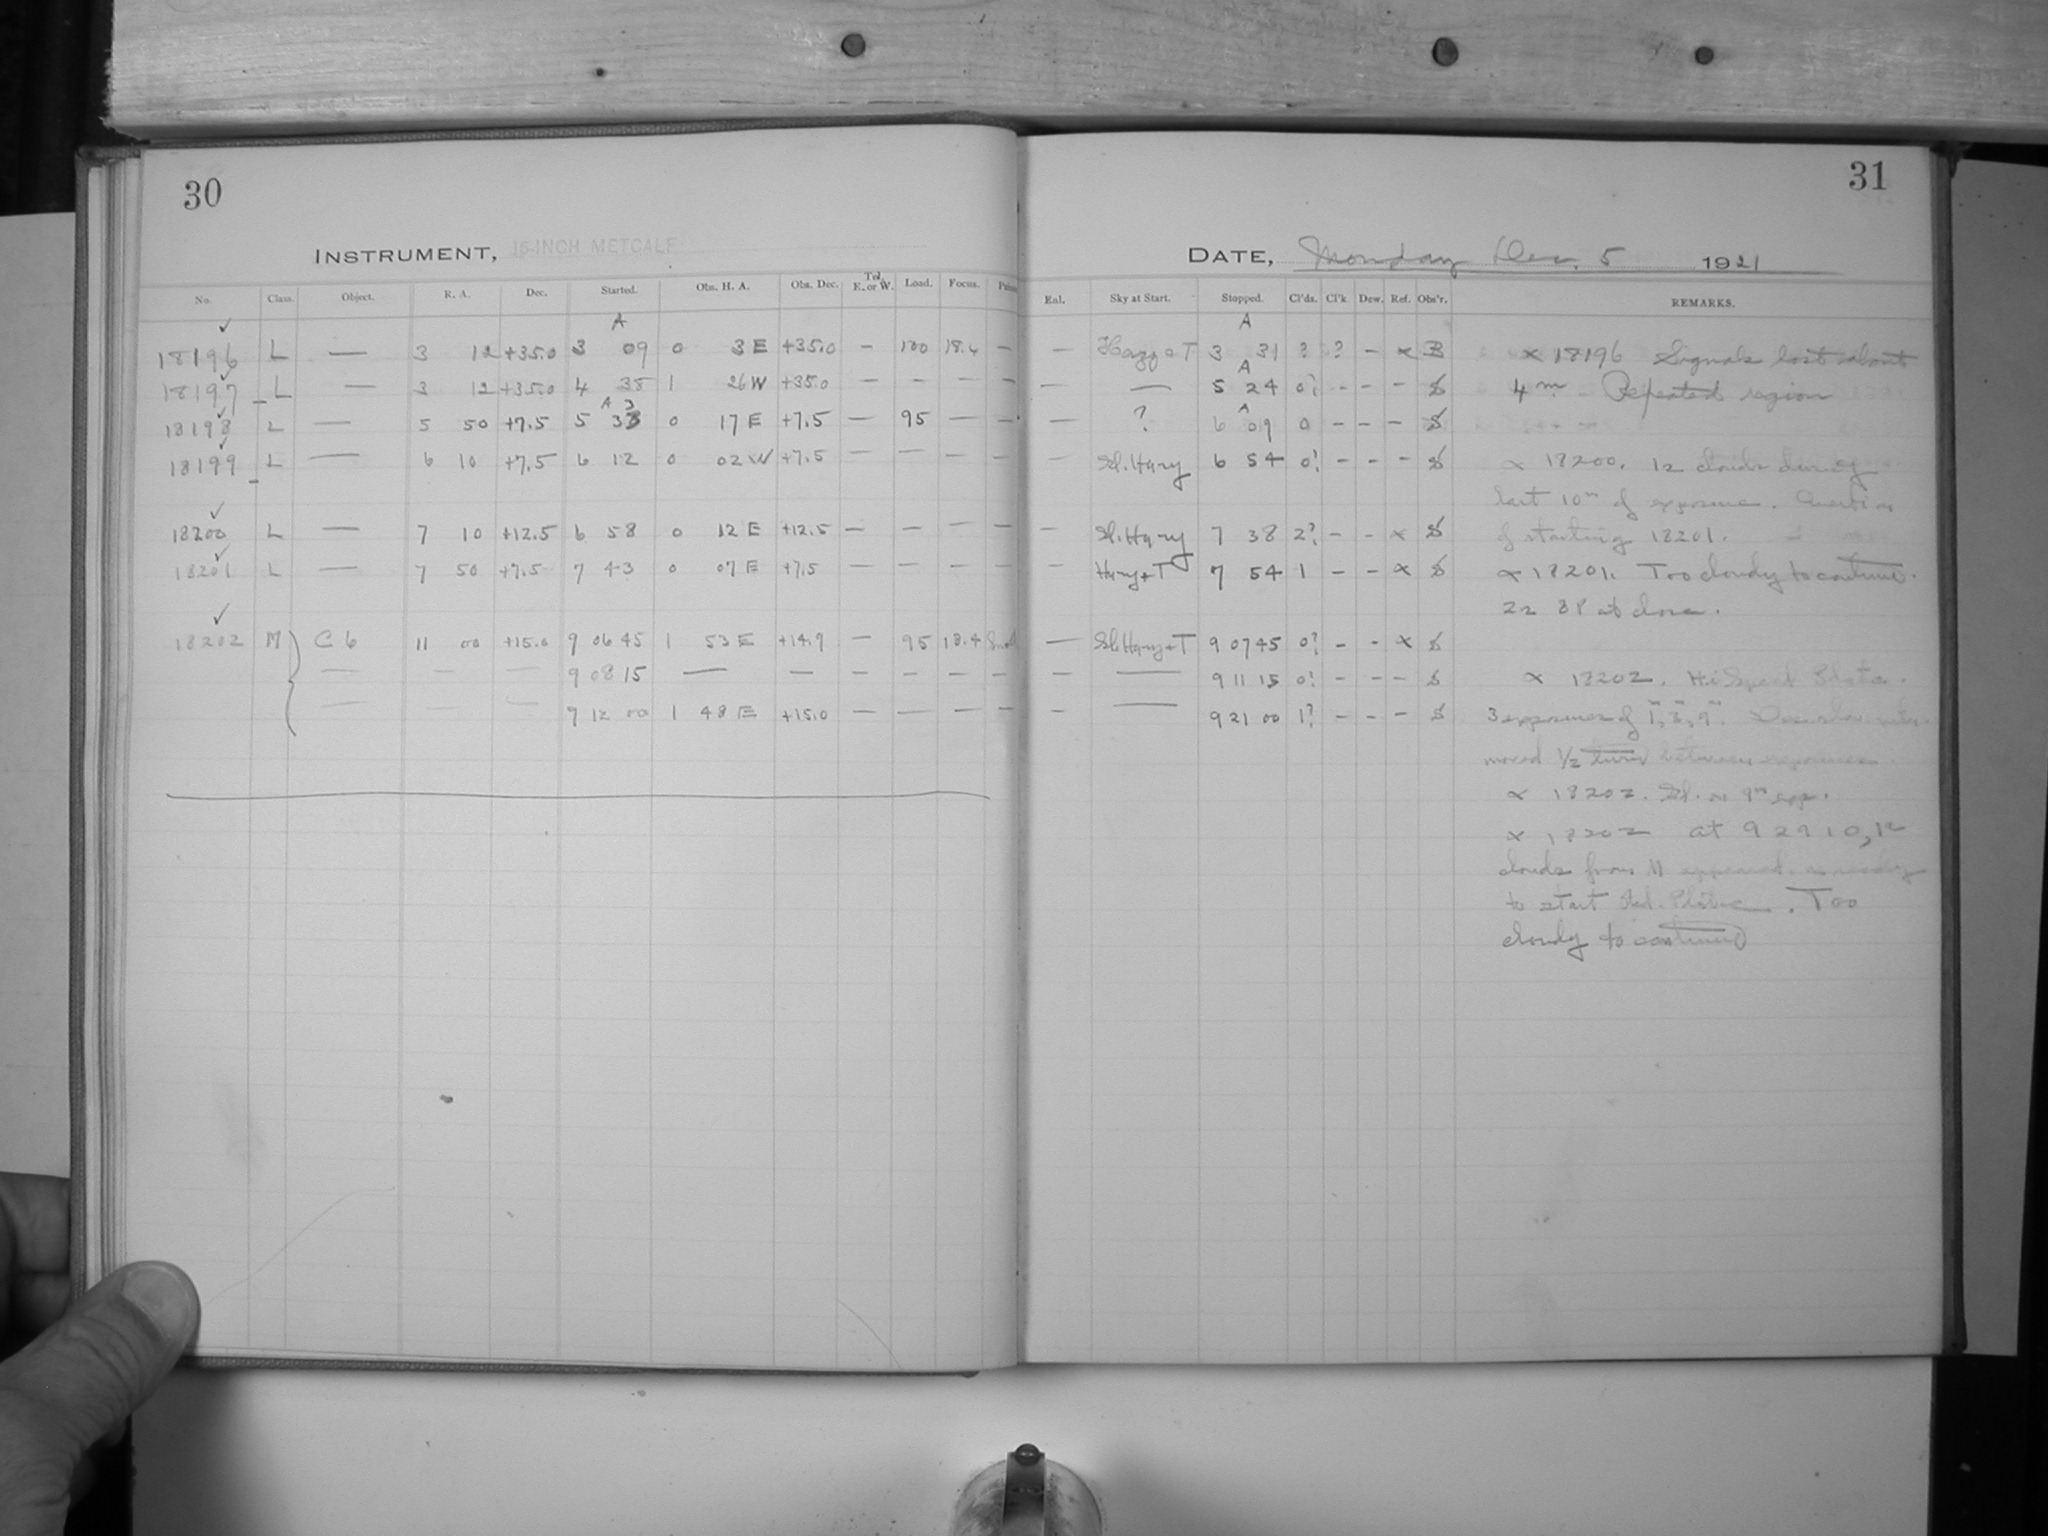 30
INSTRUMENT, 16-INCH METCALF
No. Class. Object. R. A. Dec. Started. Obs. H. A. Obs. Dec. Tel. E. or W. Load. Focus.
A
18196 L — 3 12 +35.0 3 09 0 3 E +35.0 — 100 18.4 —
18197 L — 3 12 +35.0 4 38 1 26 W +35.0 — — — —
A 3
18198 L — 5 50 +7.5 5 33 0 17 E +7.5 — 95 — —
18199 L — 6 10 +7.5 6 12 0 02 W +7.5 — — — —
18200 L — 7 10 +12.5 6 58 0 12 E +12.5 — — — —
18201 L — 7 50 +7.5 7 43 0 07 E +7.5 — — — —
18202 M C 6 11 00 +15.0 9 06 45 1 53 E +14.9 — 95 18.4
— — — 9 08 15 — — — — — —
— — — 9 12 00 1 48 E +15.0 — — — —
31
DATE, Monday Dec. 5 1921
Eal. Sky at Start. Stopped. Cl'ds. Cl'k Dew. Ref. Obs'r. REMARKS.
A
— 3 31 ? ? — x B x 18196 Signals lost about
A
— — 5 24 0? - - - S 4 m. Repeated region
A
— ? 6 09 0 - - - S
— Sl. Hazy 6 54 0? - - - S x 18200. 12 clouds during
last 10m of exposure.
— Sl. Hazy 7 38 2? - - x S of starting 18201.
— Hazy + T 7 54 1 - - x S x 18201. Too cloudy to continue.
at close.
— Sl. Hazy + T 9 07 45 0? - - x S
— — 9 11 15 0? - - - S x 18202.
— — 9 21 00 1? - - - S 3 exposures of 1m, 3m, 9m.
moved 1/2 turn between exposures.
x 18202. 9m exp.
x 18202 at 9 29 10,
clouds from appeared
to start Plate. Too
cloudy to continue